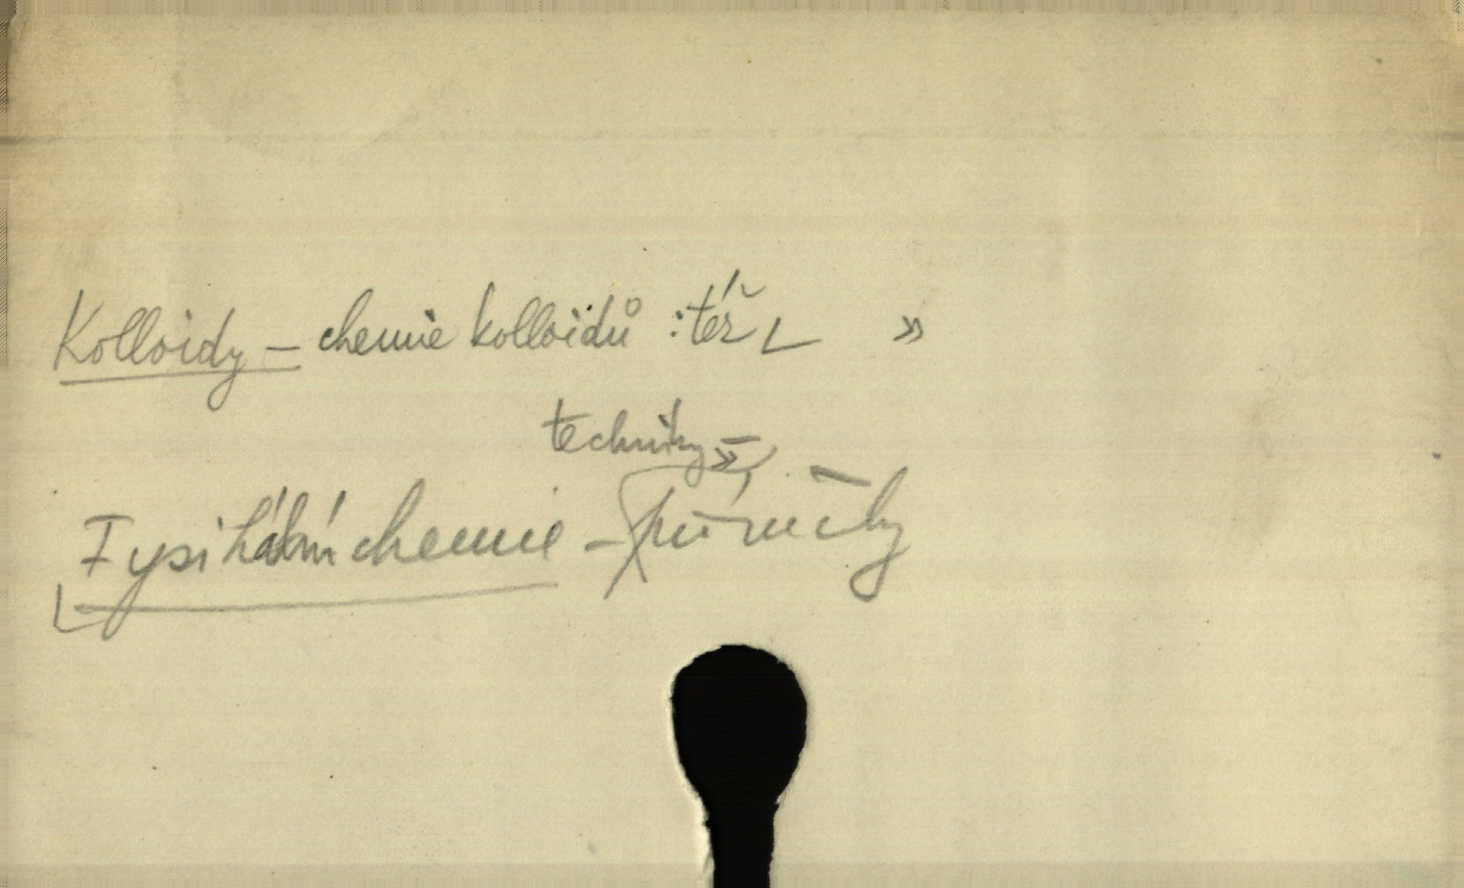 Kolloidy – chemie kolloidů : též L »
techniky – »
Fysikální chemie – příručky